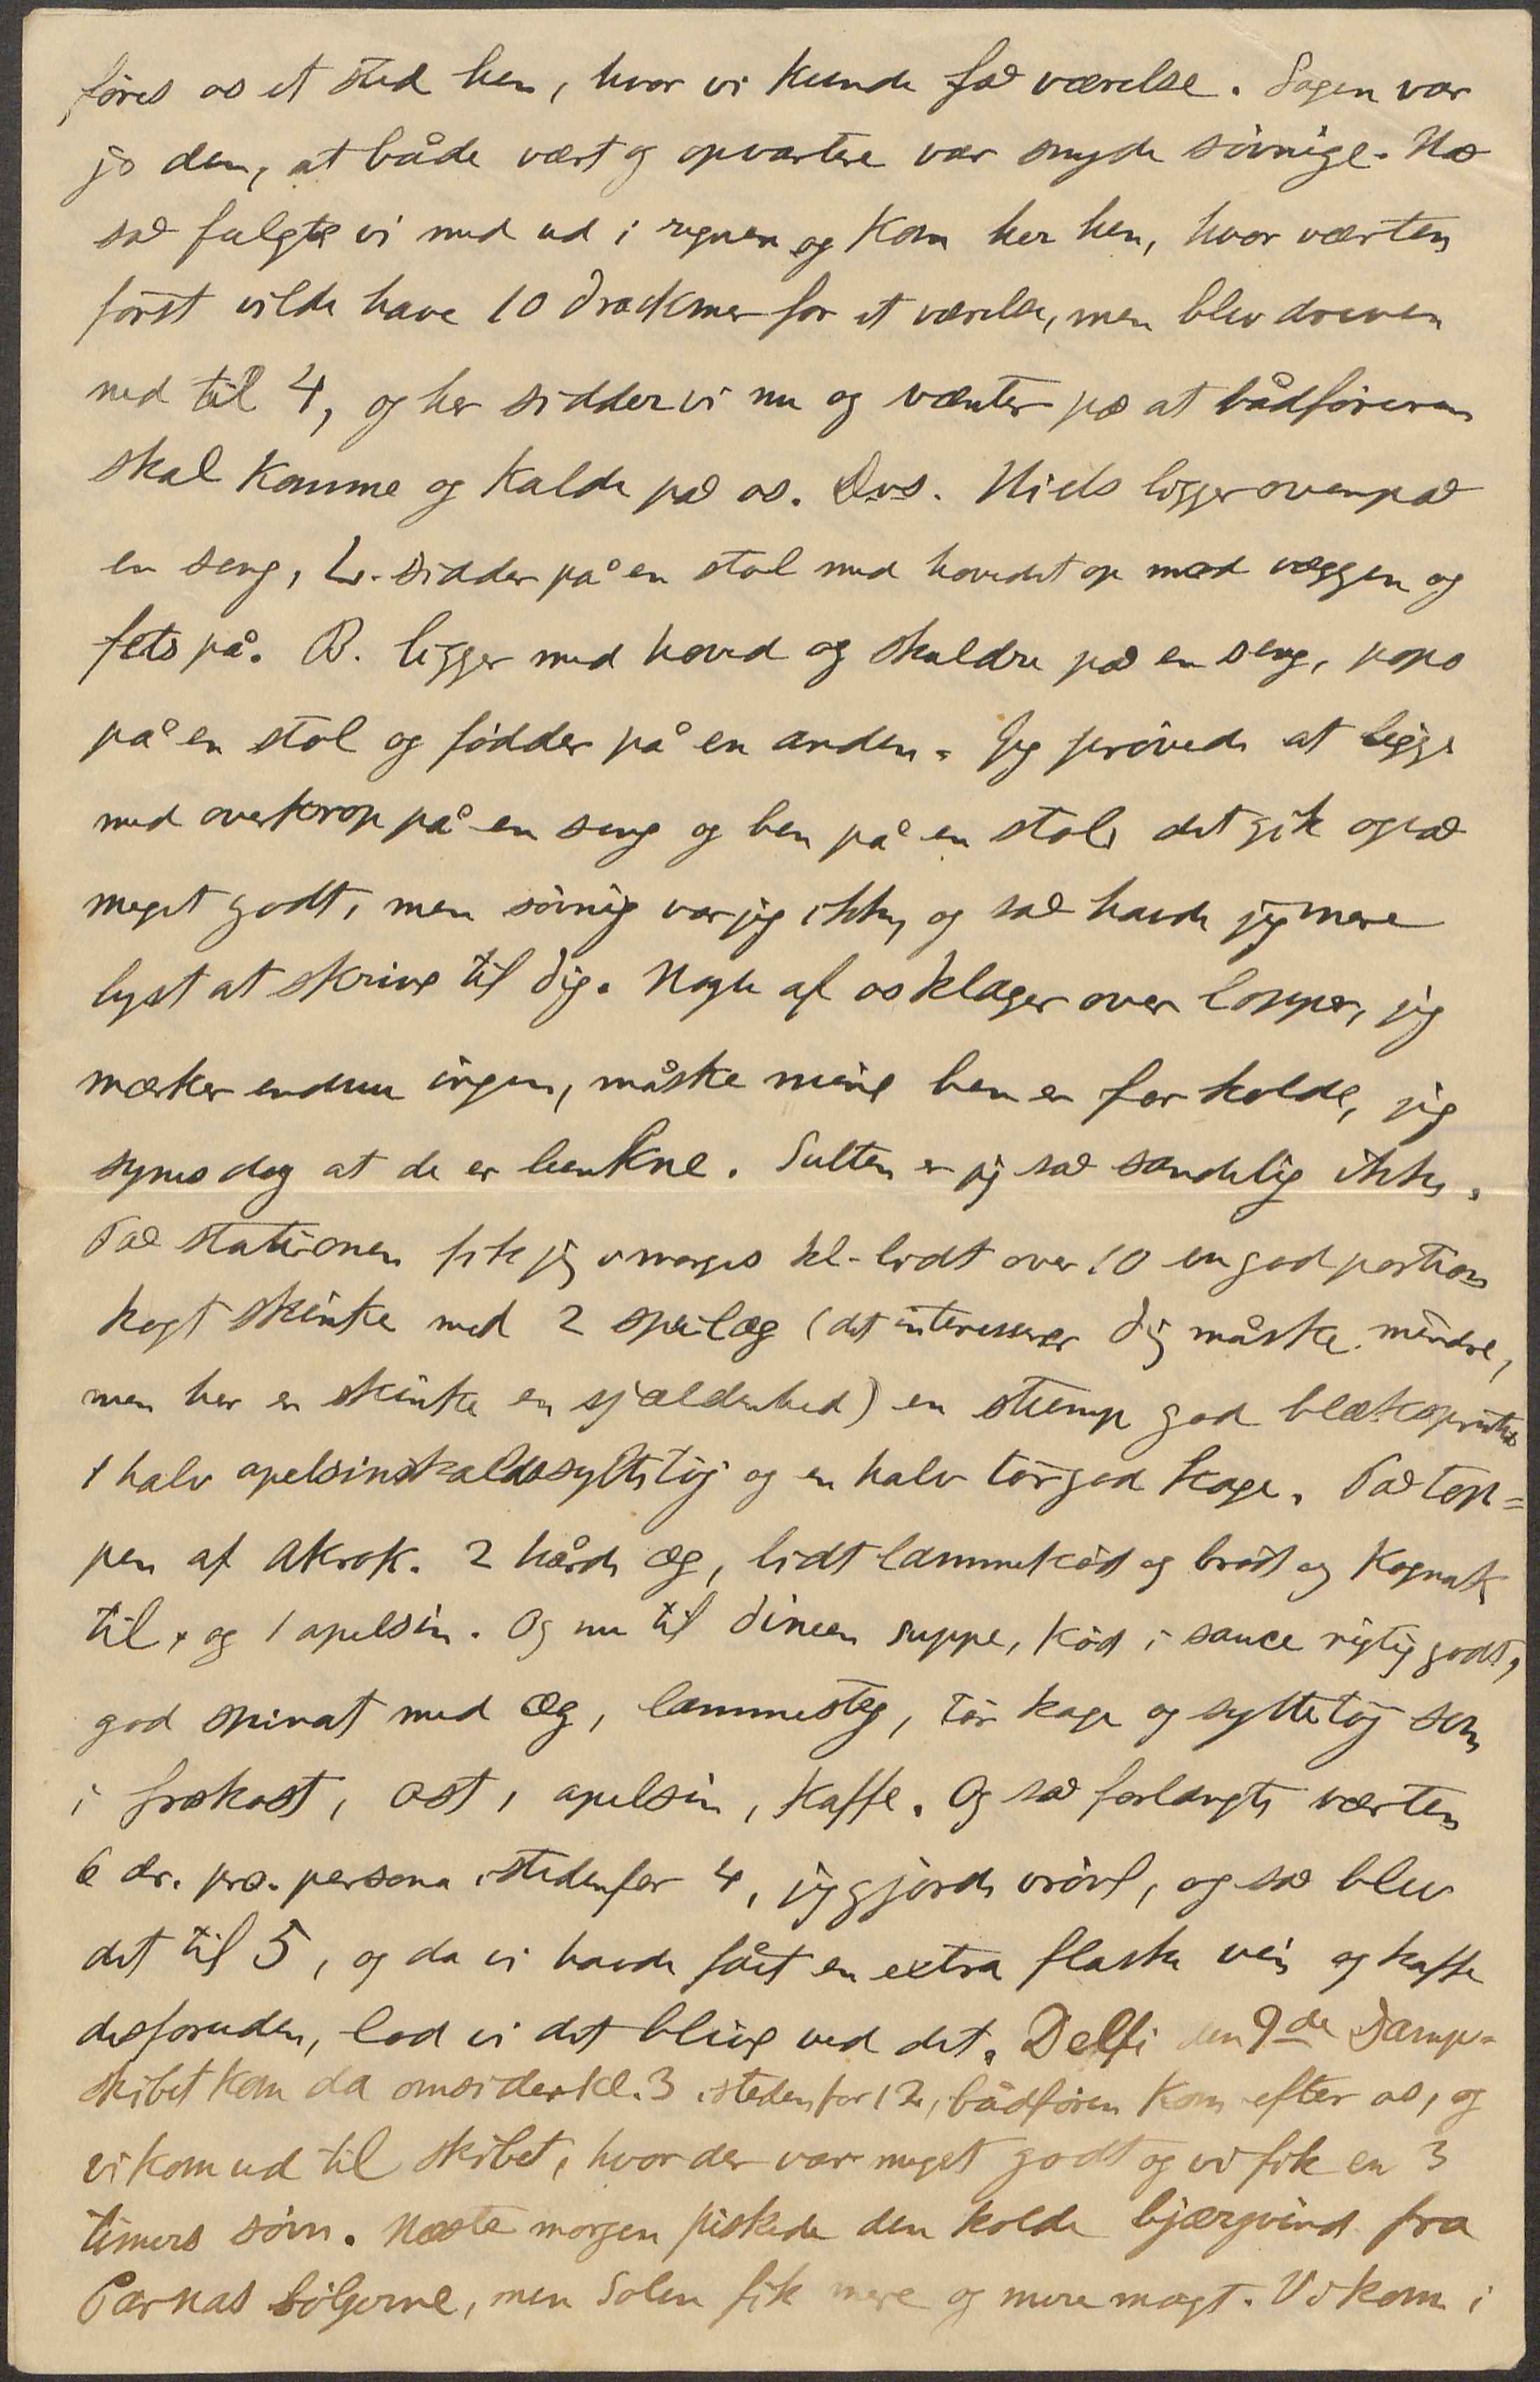 föres os et sted hen, hvor vi kunde faa værelse. Sagen var
jo den, at både vært og opvartere var snyde sövnige. Naa
saa fulgte vi med ud i regnen og kom her hen, hvor værten
först vilde have 10 drackmer for et værelse, men blev dreven
ned til 4, og her sidder vi nu og vænter paa at bådföreren
skal komme og kalde paa os. Dvs. Niels ligger ovenpaa
en seng, L. sidder på en stol med hovedet op mod væggen og
på. B. ligger med hoved og skuldre paa en seng, popo
på en stol og födder på en anden. Jeg prövede at ligge
med overkrop på en seng og ben på en stol, det gik ogsaa
meget godt, men sövnig var jeg ikke, og saa havde jeg mere
lyst at skrive til dig. Nogle af os klager over lopper, jeg
mærker endnu ingen, måske mine ben er for kolde, jeg
synes dog at de er lunkne. Sulten er jeg saa sandelig ikke.
Paa stationen fik jeg imorges kl. lidt over 10 en god portion
kogt skinke med 2 speilæg (det interesserer dig måske mindre,
men her er skinke en sjældenhed) en stump god blæksprutte
1 halv apelsinskaldssyltetöj og en halv tör god kage. Paa top=
pen af Akrok. 2 hårde æg, lidt lammeköd og bröd og kognak
til, og 1 apelsin. Og nu til dineen suppe, köd i sauce rigtig godt,
god spinat med æg, lammesteg, tör kage og syltetöj som
i frokost, ost, apelsin, kaffe. Og saa forlangte værten
6 dr. pro. persona istedenfor 4, jeg gjorde vrövl, og saa blev
det til 5, og da vi havde fået en extra flaske vin og kaffe
desforuden, lod vi det blive ved det. Delfi den 9de Damp=
skibet kom da omsider kl. 3 istedenfor 12, bådfören kom efter os, og
vi kom ud til skibet, hvor der var meget godt og vi fik en 3
timers sövn. Næste morgen piskede den kolde bjærgvind fra
Parnas bölgerne, men Solen fik mere og mere magt. Vi kom i